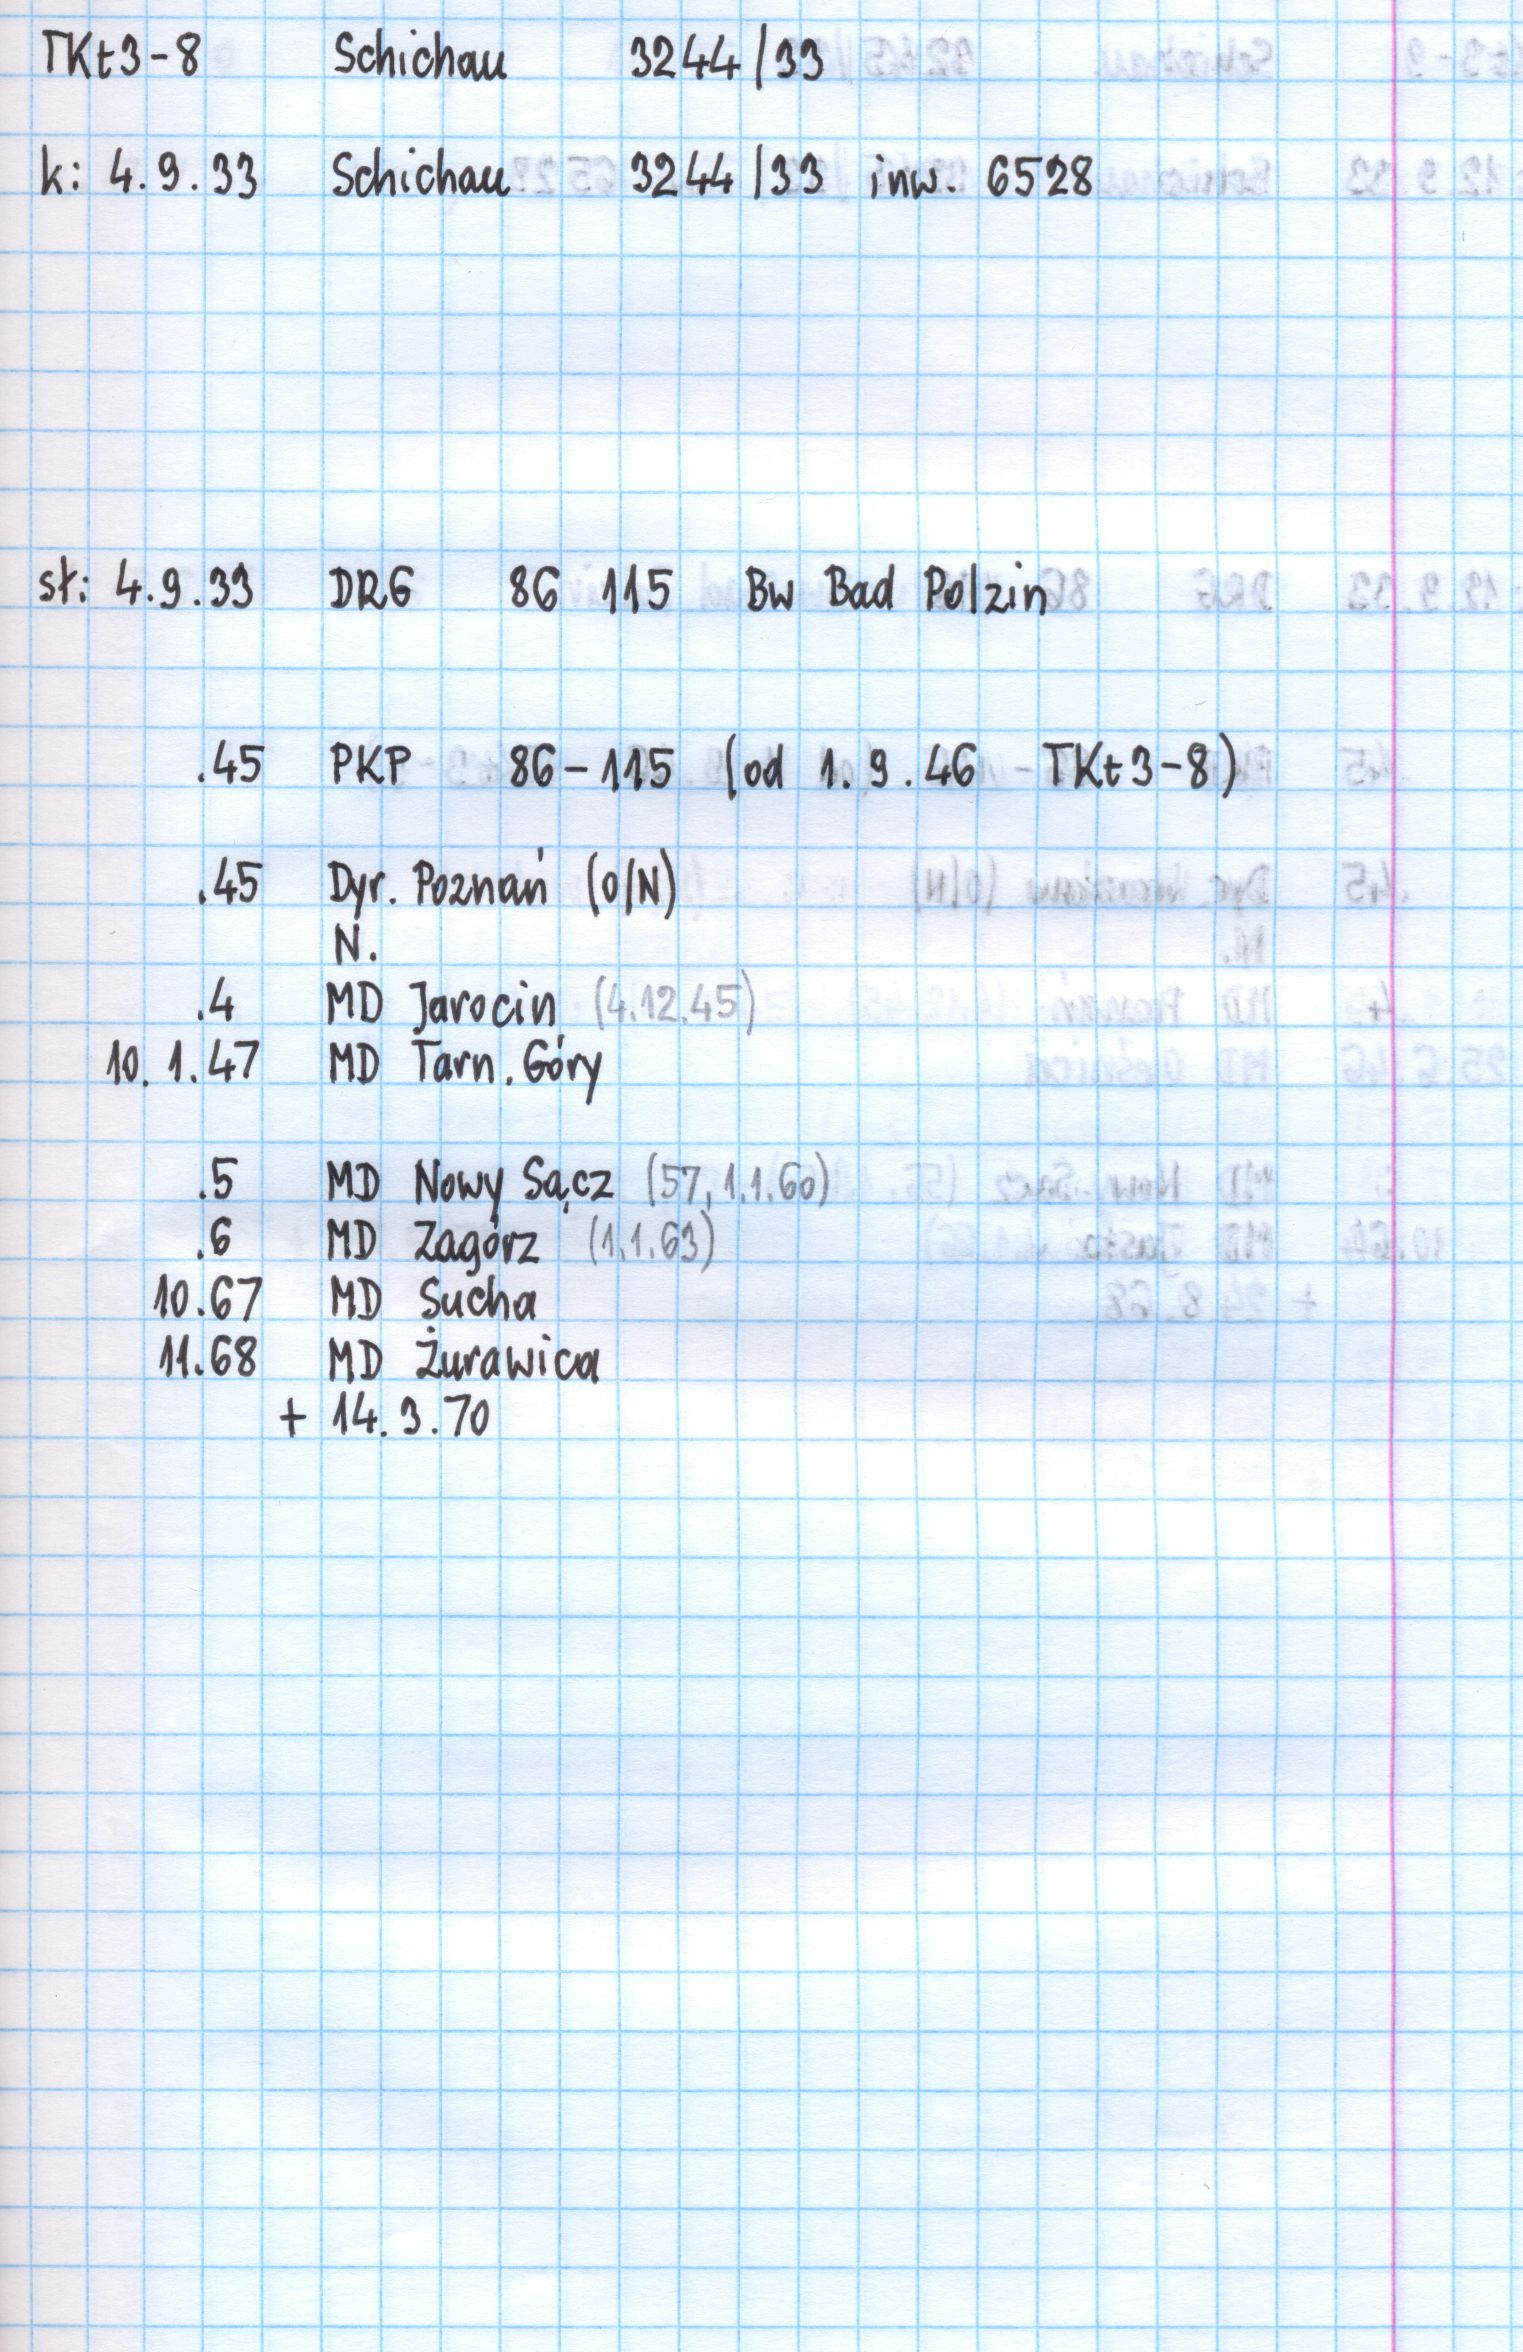 TKt3-8 Schichau 3244/33
k: 4.9.33 Schichau 3244/33 inw. 6528
st: 4.9.33 DRG 86 115 Bw Bad Polzin
.45 PKP 86-115 (od 1.9.46 TKt3-8)
.45 Dyr. Poznań (O/N)
N.
.4 MD Jarocin (4.12.45)
10.1.47 MD Tarn. Góry
.5 MD Nowy Sącz (57, 1.1.60)
.6 MD Zagórz (1.1.63)
10.67 MD Sucha
11.68 MD Żurawica
+ 14.3.70